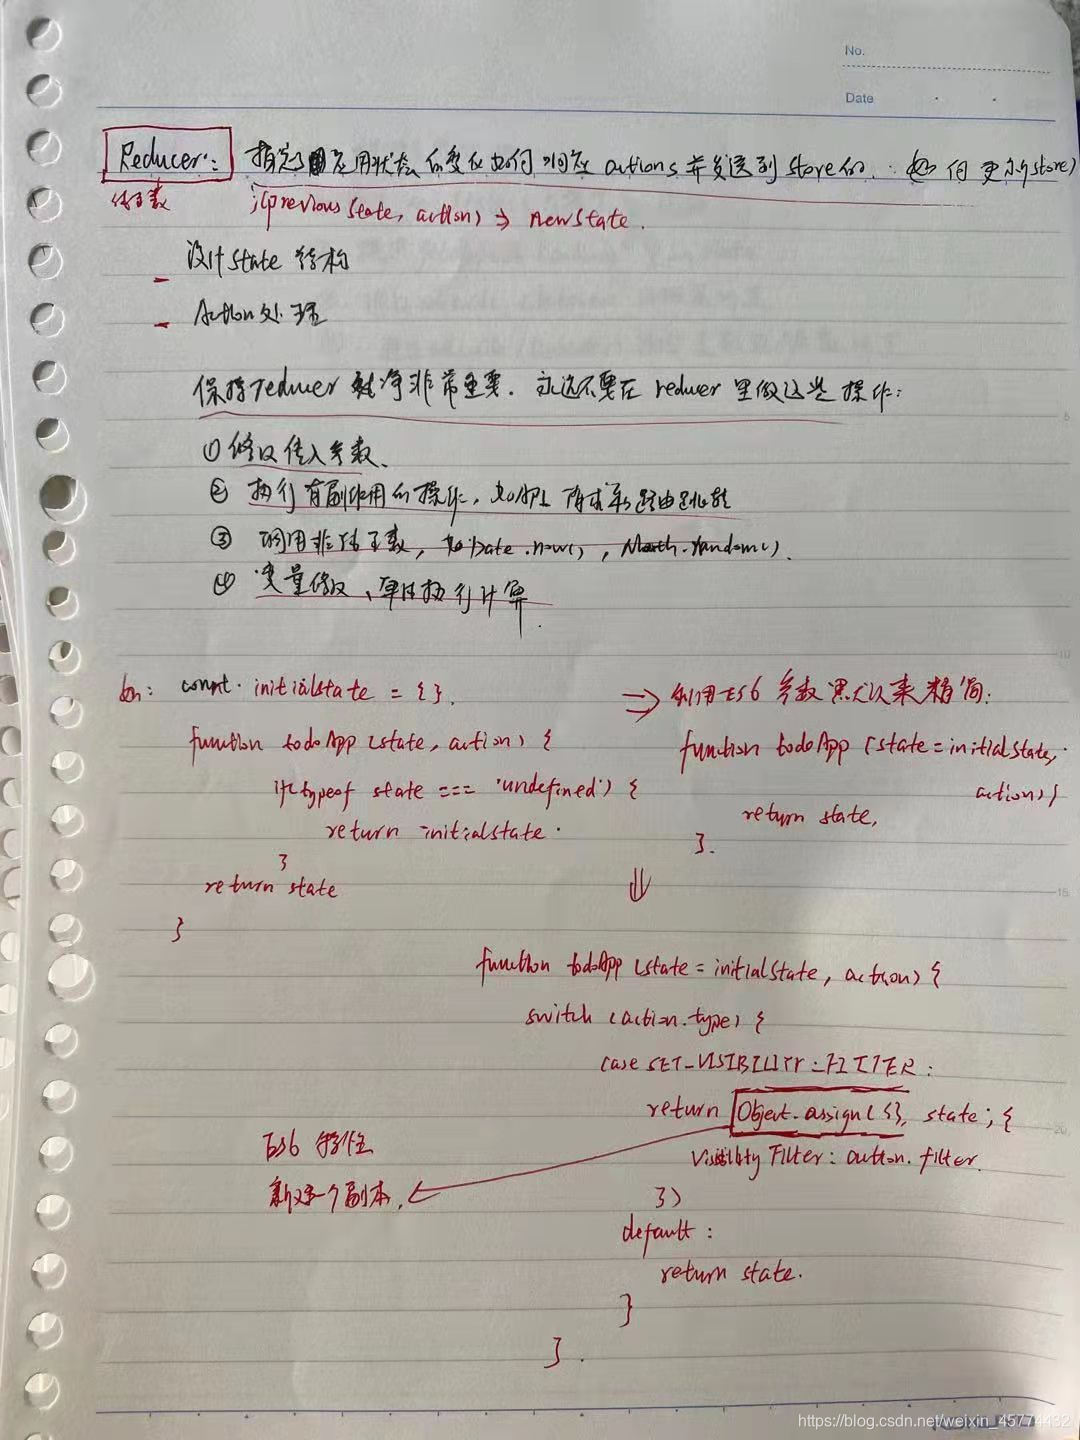 No.
Date
Reducer: 指定了应用状态的变化如何响应 actions 并发送到 store的. (如何更新store)
纯函数 ;(previousState, action) => newState.
- 设计state 结构
- Action处理
保持reducer 纯净非常重要. 永远不要在 reducer 里做这些操作:
① 修改传入参数、
② 执行有副作用的操作, 如API 请求和路由跳转
③ 调用非纯函数, 如Date.now(), Math.random().
④ 变量修改、单纯执行计算.
如: const initialstate = {}.
function todoApp (state, action) {
if(typeof state === 'undefined') {
return initialstate.
}
return state
}
=> 利用ES6 参数默认来精简:
function todoApp (state=initialstate,
action){
return state,
}.
⇓
function todoApp (state = initialstate, action) {
switch (action.type) {
case SET_VISIBILITY_FILTER:
return Object.assign({}, state; {
visibilityFilter: action.filter.
})
ES6 特性
新建一个副本.
default:
return state.
}
}.
https://blog.csdn.net/weixin_45774432